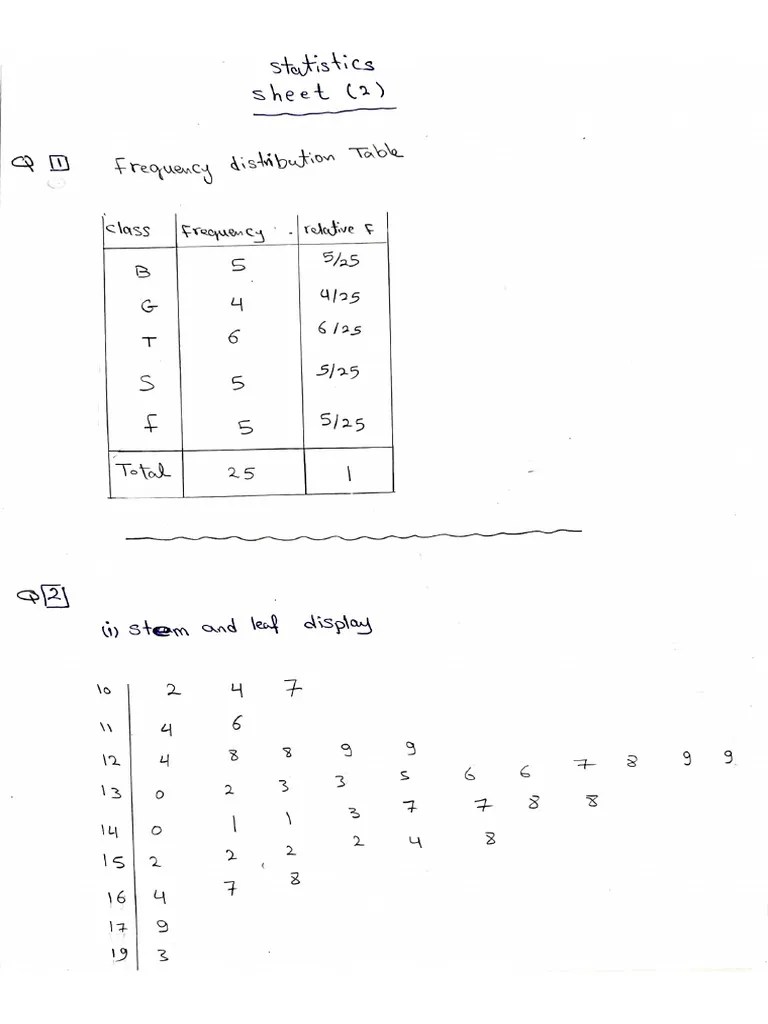 Statistics
Sheet (2)
Q 1 Frequency distribution Table
Class Frequency relative F
B 5 5/25
G 4 4/25
T 6 6/25
S 5 5/25
F 5 5/25
Total 25 1
Q 2
(i) stem and leaf display
10 2 4 7
11 4 6
12 4 8 8 9 9
13 0 2 3 3 5 6 6 7 8 9 9
14 0 1 1 3 7 7 8 8
15 2 2 2 2 4 8
16 4 7 8
17 9
19 3